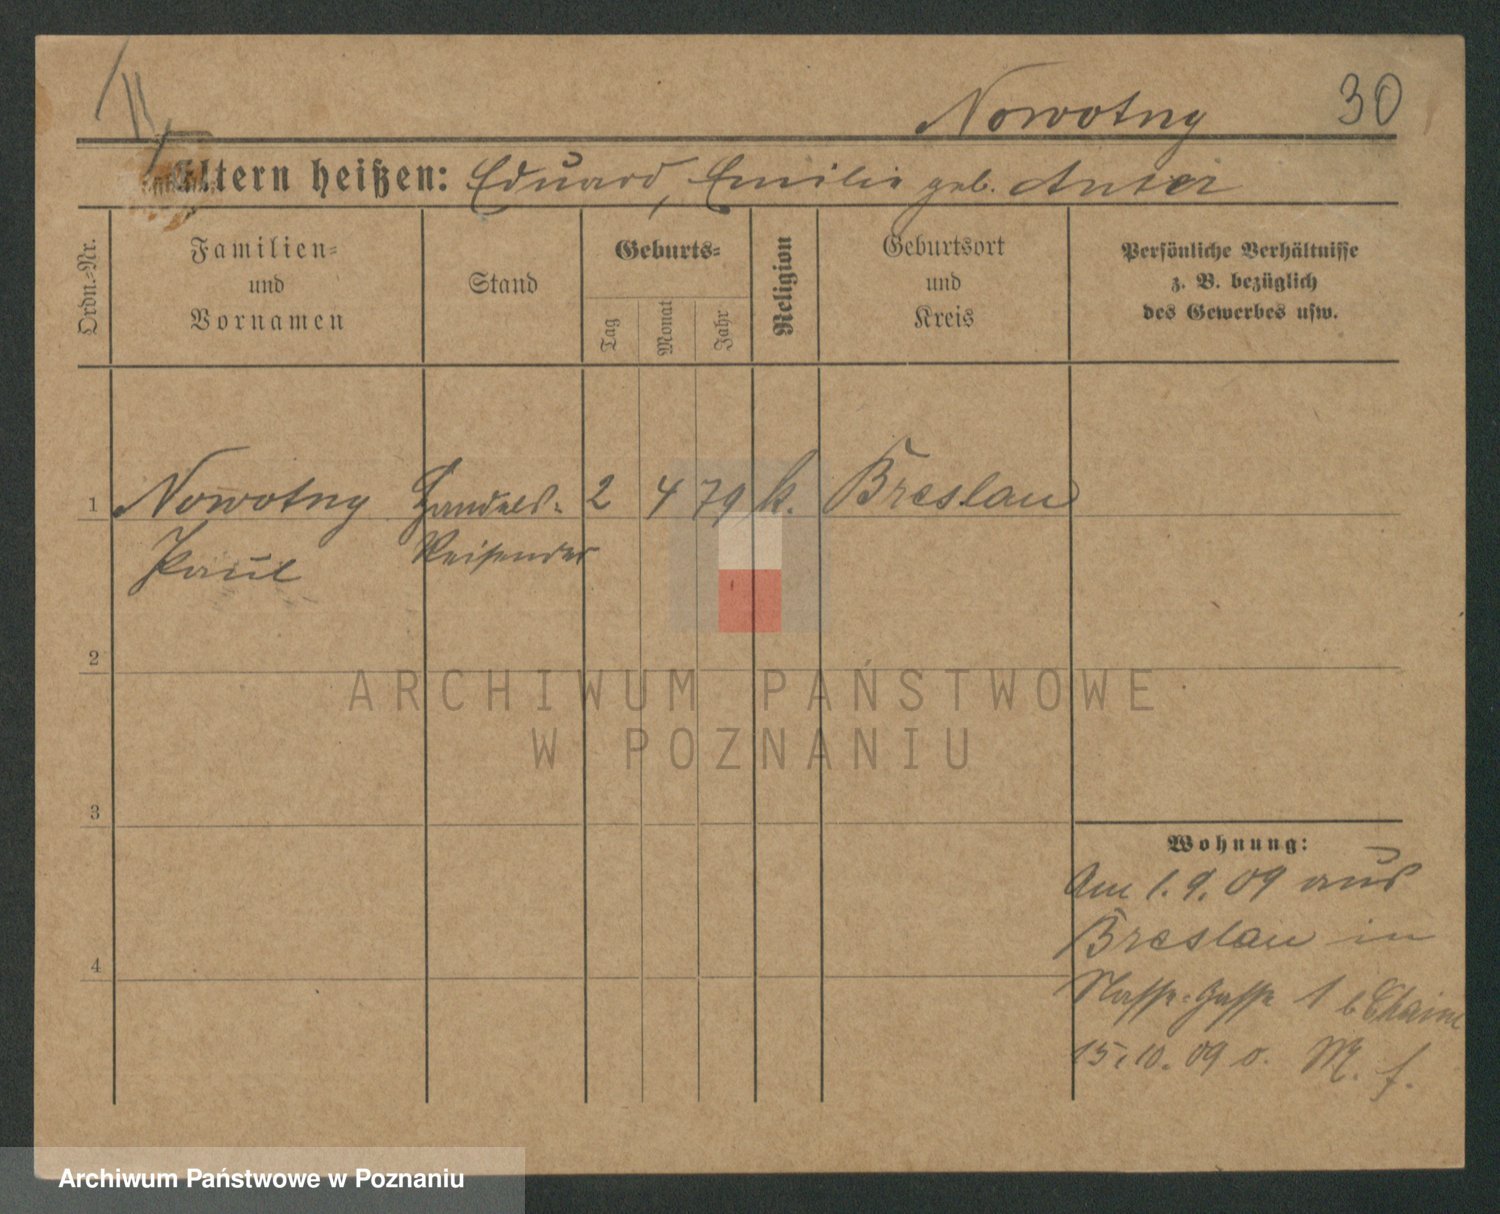 Nowotny 30
Eltern heißen: Eduard, Emilie geb.
Ordn.-Nr.
Familien-
und
Vornamen
Stand
Geburts-
Tag
Monat
Jahr
Religion
Geburtsort
und
Kreis
Persönliche Verhältnisse
z. B. bezüglich
des Gewerbes usw.
1 Nowotny Handels- 2 4 79 k. Breslau
Paul Reisender
2
ARCHIWUM PAŃSTWOWE
W POZNANIU
3
Wohnung:
Am 1. 9. 09 aus
Breslau in
Nasse-Gasse 1 b Chaim
15. 10. 09 o. M. f.
4
Archiwum Państwowe w Poznaniu